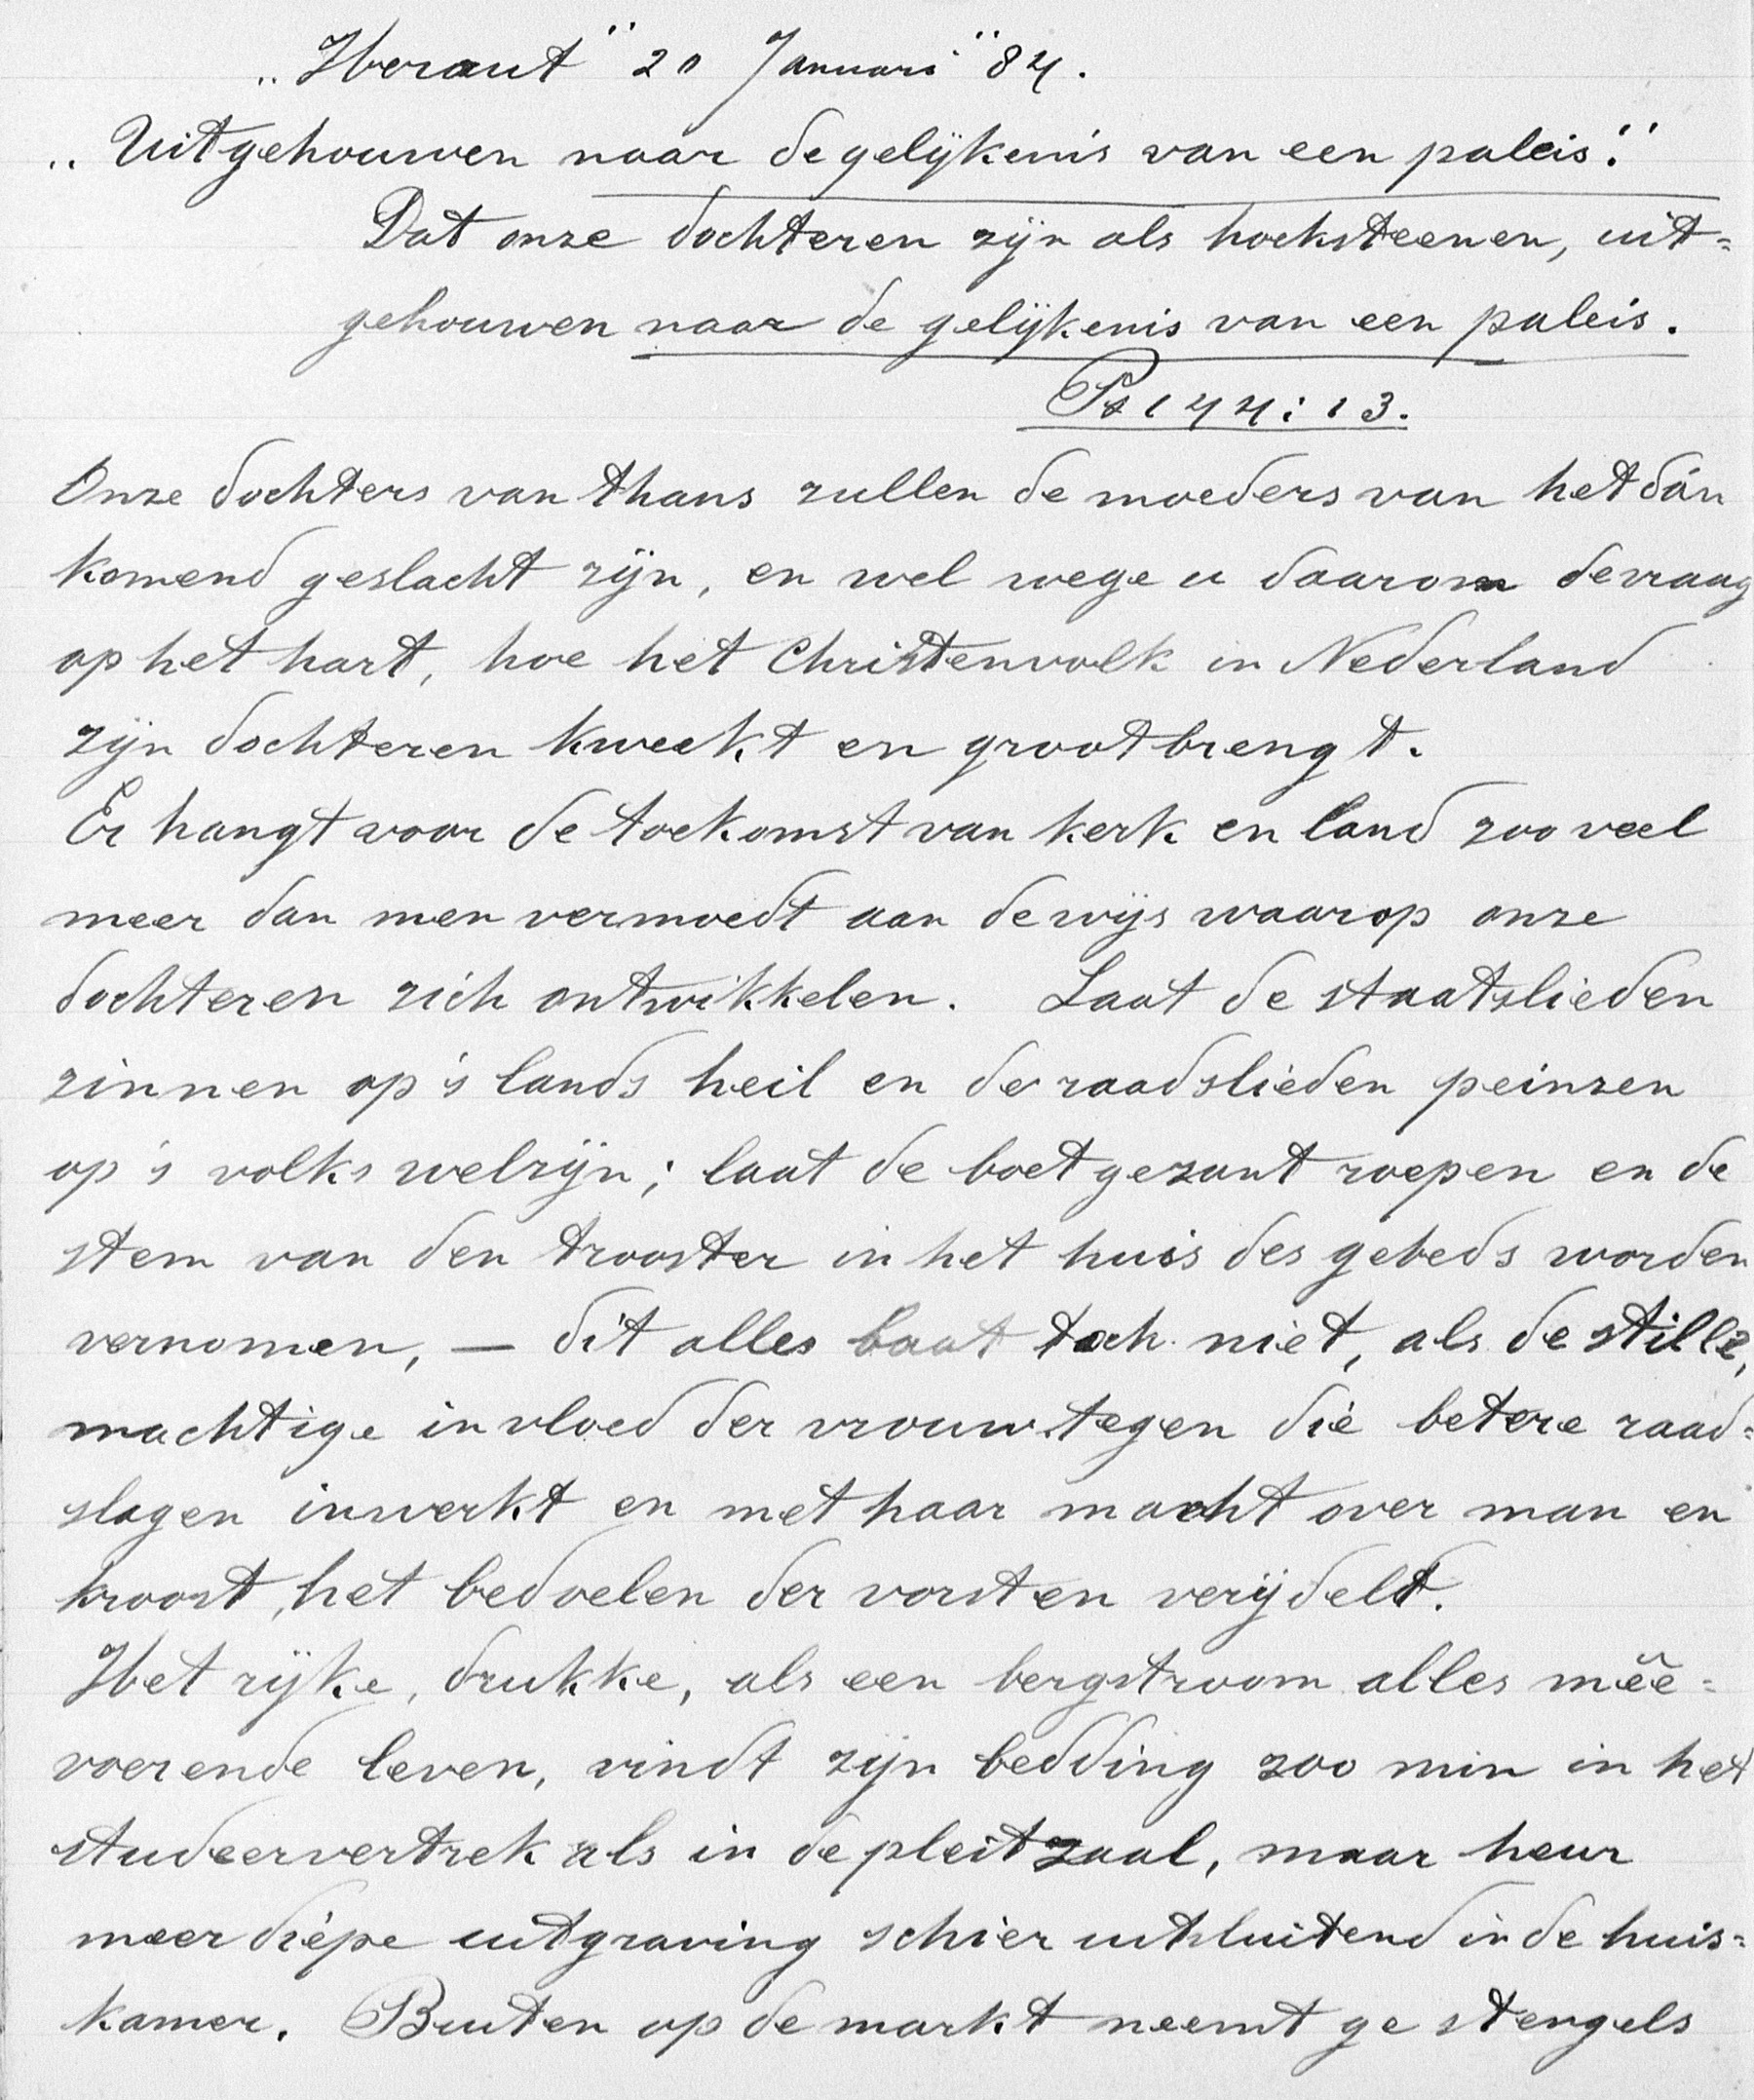 „Heraut" 20 Januari "84.
„Uitgehouwen naar de gelijkenis van een paleis."
Dat onze dochteren zijn als hoeksteenen, uit=
gehouwen naar de gelijkenis van een paleis.
Ps 144:13.
Onze dochters van thans zullen de moeders van het dán
komend geslacht zijn, en wel wege u daarom de vraag
op het hart, hoe het Christenvolk in Nederland
zijn dochteren kweekt en grootbrengt.
Er hangt voor de toekomst van kerk en land zooveel
meer dan men vermoedt aan de wijs waarop onze
dochteren zich ontwikkelen. Laat de staatslieden
zinnen op 's lands heil en de raadslieden peinzen
op 's volks welzijn; laat de boetgezant roepen en de
stem van den trooster in het huis des gebeds worden
vernomen, — dit alles baat toch niet, als de stille,
machtige invloed der vrouw tegen die betere raad=
slagen inwerkt en met haar macht over man en
kroost, het bedoelen der vorsten verijdelt.
Het rijke, drukke, als een bergstroom alles meê=
voerende leven, vindt zijn bedding zoo min in het
studeervertrek als in de pleitzaal, maar heur
meer diepe uitgraving schier uitsluitend in de huis=
kamer. Buiten op de markt neemt ge stengels